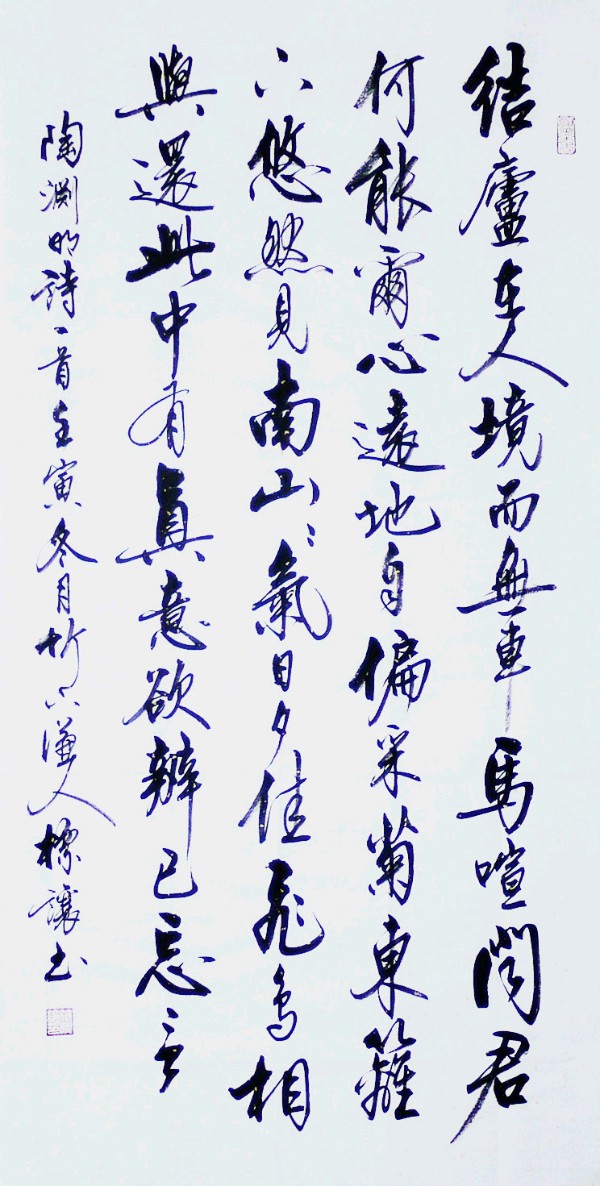 結廬在人境而無車馬喧問君
何能爾心遠地自偏采菊東籬
下悠然見南山〻氣日夕佳飛鳥相
與還此中有真意欲辨已忘言
陶淵明詩一首壬寅冬月竹下謙人讓书